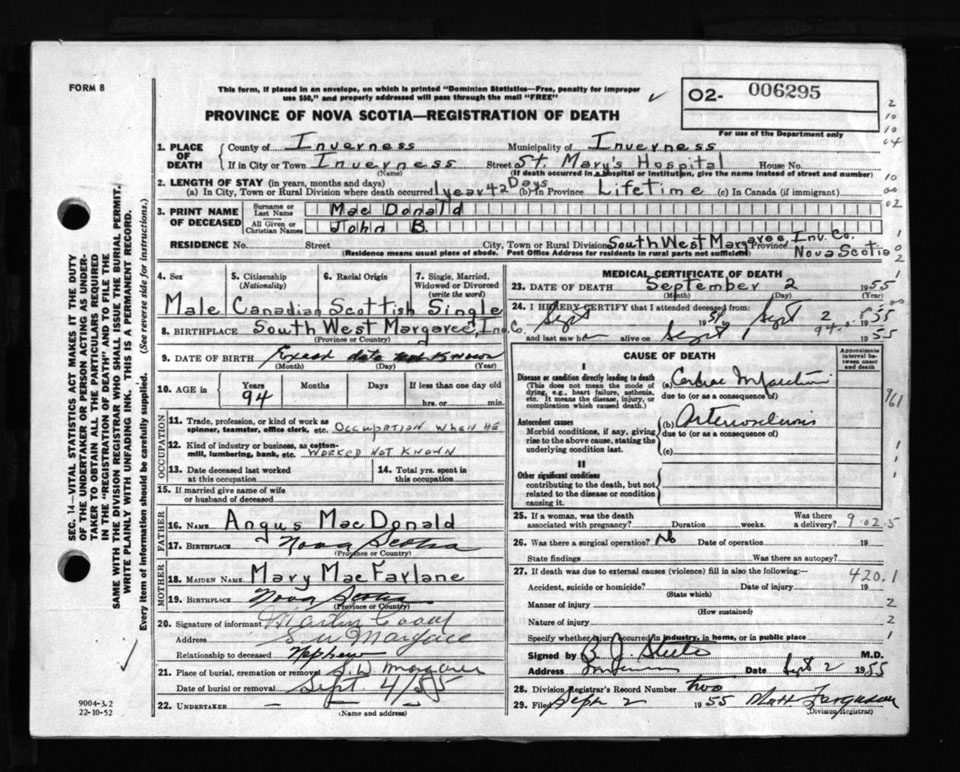 FORM 8
This form, if placed in an envelope, on which is printed "Dominion Statistics—Free, penalty for improper
use $50," and properly addressed will pass through the mail "FREE"
PROVINCE OF NOVA SCOTIA—REGISTRATION OF DEATH
O2- 006295
For use of the Department only
1. PLACE OF DEATH
County of Inverness Municipality of Inverness
If in City or Town Inverness Street St. Mary's Hospital House No.
(Name) (If death occurred in a hospital or institution, give the name instead of street and number)
2. LENGTH OF STAY (in years, months and days)
(a) In City, Town or Rural Division where death occurred 1 year 42 Days (b) in Province Lifetime (c) In Canada (if immigrant)
3. PRINT NAME OF DECEASED
Surname or Last Name Mac Donald
All Given or Christian Names John B.
RESIDENCE No. Street City, Town or Rural Division South West Margaree Inv. Co.
(Residence means usual place of abode. Post Office Address for residents in rural parts not sufficient) Nova Scotia
4. Sex
5. Citizenship
(Nationality)
6. Racial Origin
7. Single, Married, Widowed or Divorced
(write the word)
Male Canadian Scottish Single
8. BIRTHPLACE South West Margaree, In. Co.
(Province or Country)
9. DATE OF BIRTH Exact date not known
(Month) (Day) (Year)
10. AGE in Years Months Days If less than one day old
94 hrs. or min.
OCCUPATION
11. Trade, profession, or kind of work as
spinner, teamster, office clerk, etc. OCCUPATION WHEN HE
12. Kind of industry or business, as cotton-
mill, lumbering, bank, etc. WORKED NOT KNOWN
13. Date deceased last worked
at this occupation
14. Total yrs. spent in
this occupation
15. If married give name of wife
or husband of deceased
FATHER
16. NAME Angus MacDonald
17. BIRTHPLACE Nova Scotia
(Province or Country)
MOTHER
18. MAIDEN NAME Mary MacFarlane
19. BIRTHPLACE Nova Scotia
(Province or Country)
20. Signature of informant Martin
Address S. W Margaree
Relationship to deceased Nephew
21. Place of burial, cremation or removal S. W Margaree
Date of burial or removal Sept. 4/55
22. UNDERTAKER — — —
(Name and address)
MEDICAL CERTIFICATE OF DEATH
23. DATE OF DEATH September 2 1955
(Month) (Day) (Year)
24. I HEREBY CERTIFY that I attended deceased from:
Sept 1954 Sept 2 1955
and last saw h alive on Sept 1 1955
94
CAUSE OF DEATH
Approximate interval between onset and death
I
Disease or condition directly leading to death
(This does not mean the mode of
dying, e.g., heart failure, asthenia,
etc. It means the disease, injury, or
complication which caused death.)
(a) Cardiac Infarction
due to (or as a consequence of)
Antecedent causes
Morbid conditions, if any, giving
rise to the above cause, stating the
underlying condition last.
(b) Arteriosclerosis
due to (or as a consequence of)
(c)
II
Other significant conditions
contributing to the death, but not
related to the disease or condition
causing it.
25. If a woman, was the death
associated with pregnancy? Duration weeks. Was there
a delivery? 9.02.5
26. Was there a surgical operation? No Date of operation 19
State findings Was there an autopsy?
27. If death was due to external causes (violence) fill in also the following:—
420.1
Accident, suicide or homicide? Date of injury 19
(State which)
Manner of injury
(How sustained)
Nature of injury
Specify whether injury occurred in industry, in home, or in public place
Signed by M.D.
Address Inverness Date Sept 2 1955
28. Division Registrar's Record Number two
29. Filed Sept 2 1955 Matt Ferguson
(Division Registrar)
SEC. 14—VITAL STATISTICS ACT MAKES IT THE DUTY
OF THE UNDERTAKER OR PERSON ACTING AS UNDER-
TAKER TO OBTAIN ALL THE PARTICULARS REQUIRED
IN THE "REGISTRATION OF DEATH" AND TO FILE THE
SAME WITH THE DIVISION REGISTRAR WHO SHALL ISSUE THE BURIAL PERMIT.
WRITE PLAINLY WITH UNFADING INK. THIS IS A PERMANENT RECORD.
Every item of information should be carefully supplied. (See reverse side for instructions.)
9004-3.2
22-10-52